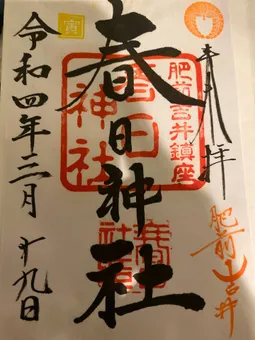 奉拝
肥前吉井
肥前吉井鎮座
春日神社
春日神社
寅
令和四年三月
十九日